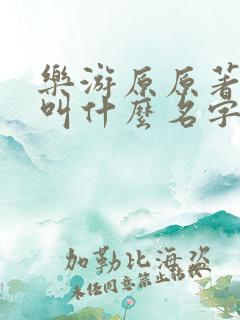 樂游原原著
叫什麼名字
加勒比海盜
未經同意禁止轉載